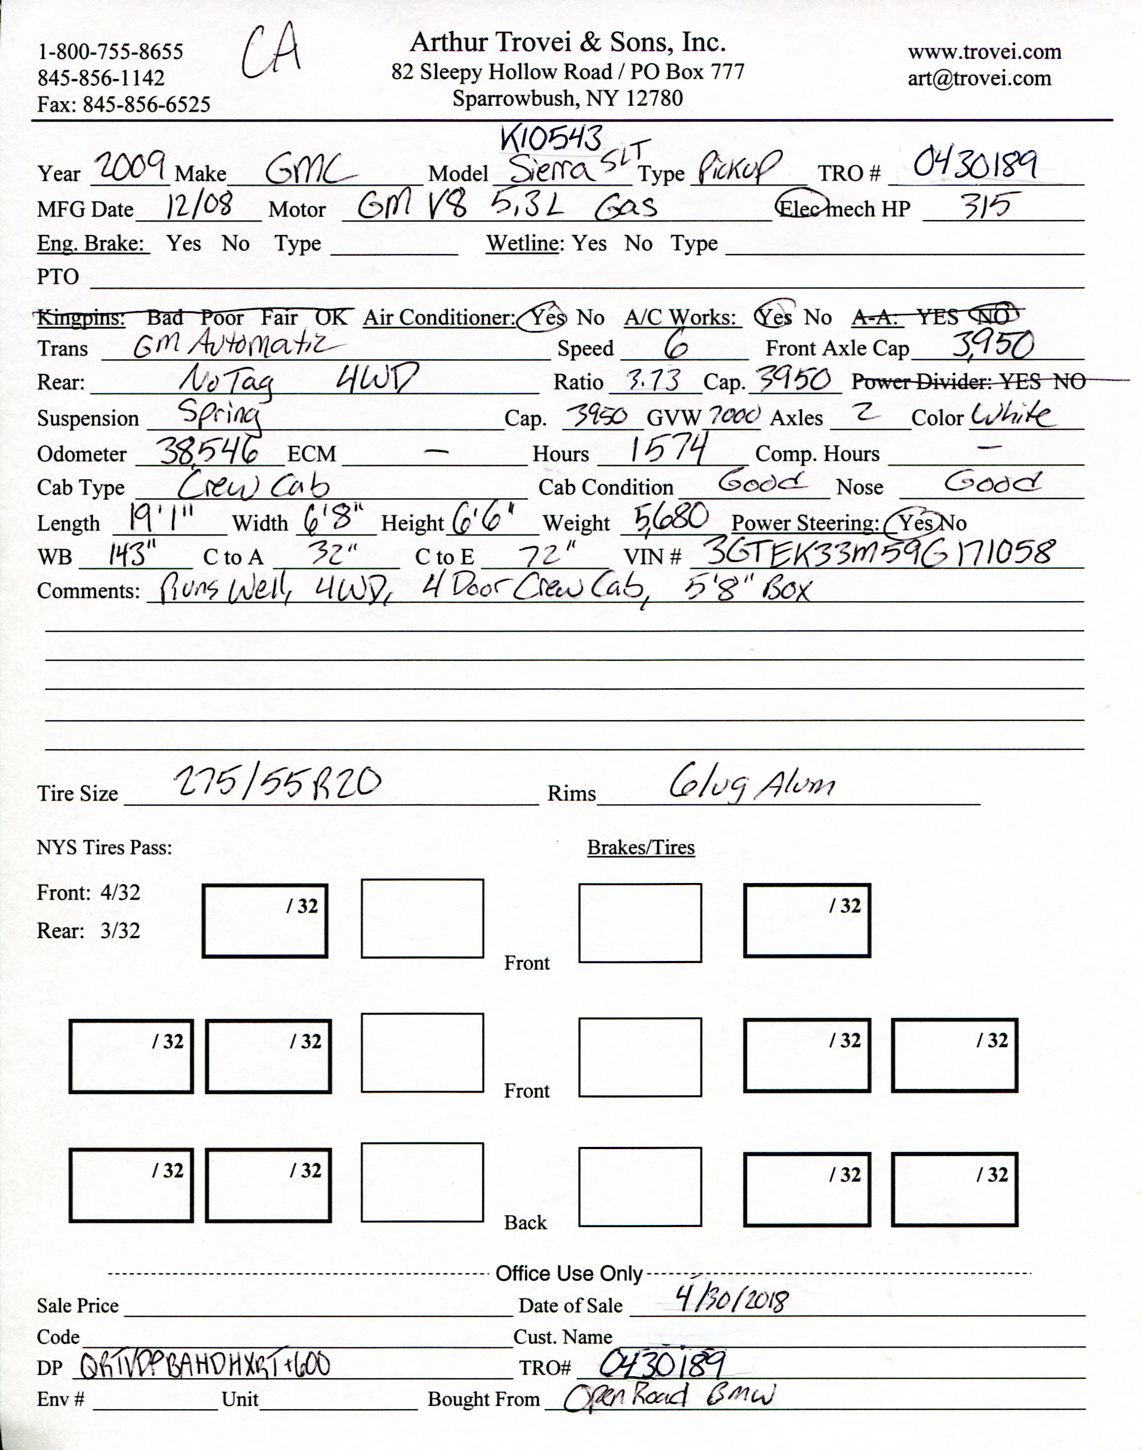 1-800-755-8655 CA Arthur Trovei & Sons, Inc. www.trovei.com
845-856-1142 82 Sleepy Hollow Road / PO Box 777 art@trovei.com
Fax: 845-856-6525 Sparrowbush, NY 12780
K10543
Year 2009 Make GMC Model Sierra SLT Type Pickup TRO # 0430189
MFG Date 12/08 Motor GM V8 5.3L Gas Elec mech HP 315
Eng. Brake: Yes No Type Wetline: Yes No Type
PTO
Kingpins: Bad Poor Fair OK Air Conditioner: Yes No A/C Works: Yes No A-A: YES NO
Trans GM Automatic Speed 6 Front Axle Cap 3,950
Rear: No Tag 4WD Ratio 3.73 Cap. 3950 Power Divider: YES NO
Suspension Spring Cap. 3950 GVW 7000 Axles 2 Color White
Odometer 38,546 ECM — Hours 1574 Comp. Hours —
Cab Type Crew Cab Cab Condition Good Nose Good
Length 19'1" Width 6'8" Height 6'6" Weight 5,680 Power Steering: Yes No
WB 143" C to A 32" C to E 72" VIN # 3GTEK33M59G171058
Comments: Runs Well, 4WD, 4 Door Crew Cab, 5'8" Box
Tire Size 275/55R20 Rims 6 lug Alum
NYS Tires Pass: Brakes/Tires
Front: 4/32 / 32 / 32
Rear: 3/32
Front
/ 32 / 32 / 32 / 32
Front
/ 32 / 32 / 32 / 32
Back
Office Use Only
Sale Price Date of Sale 4/30/2018
Code Cust. Name
DP TRO# 0430189
Env # Unit Bought From Open Road BMW